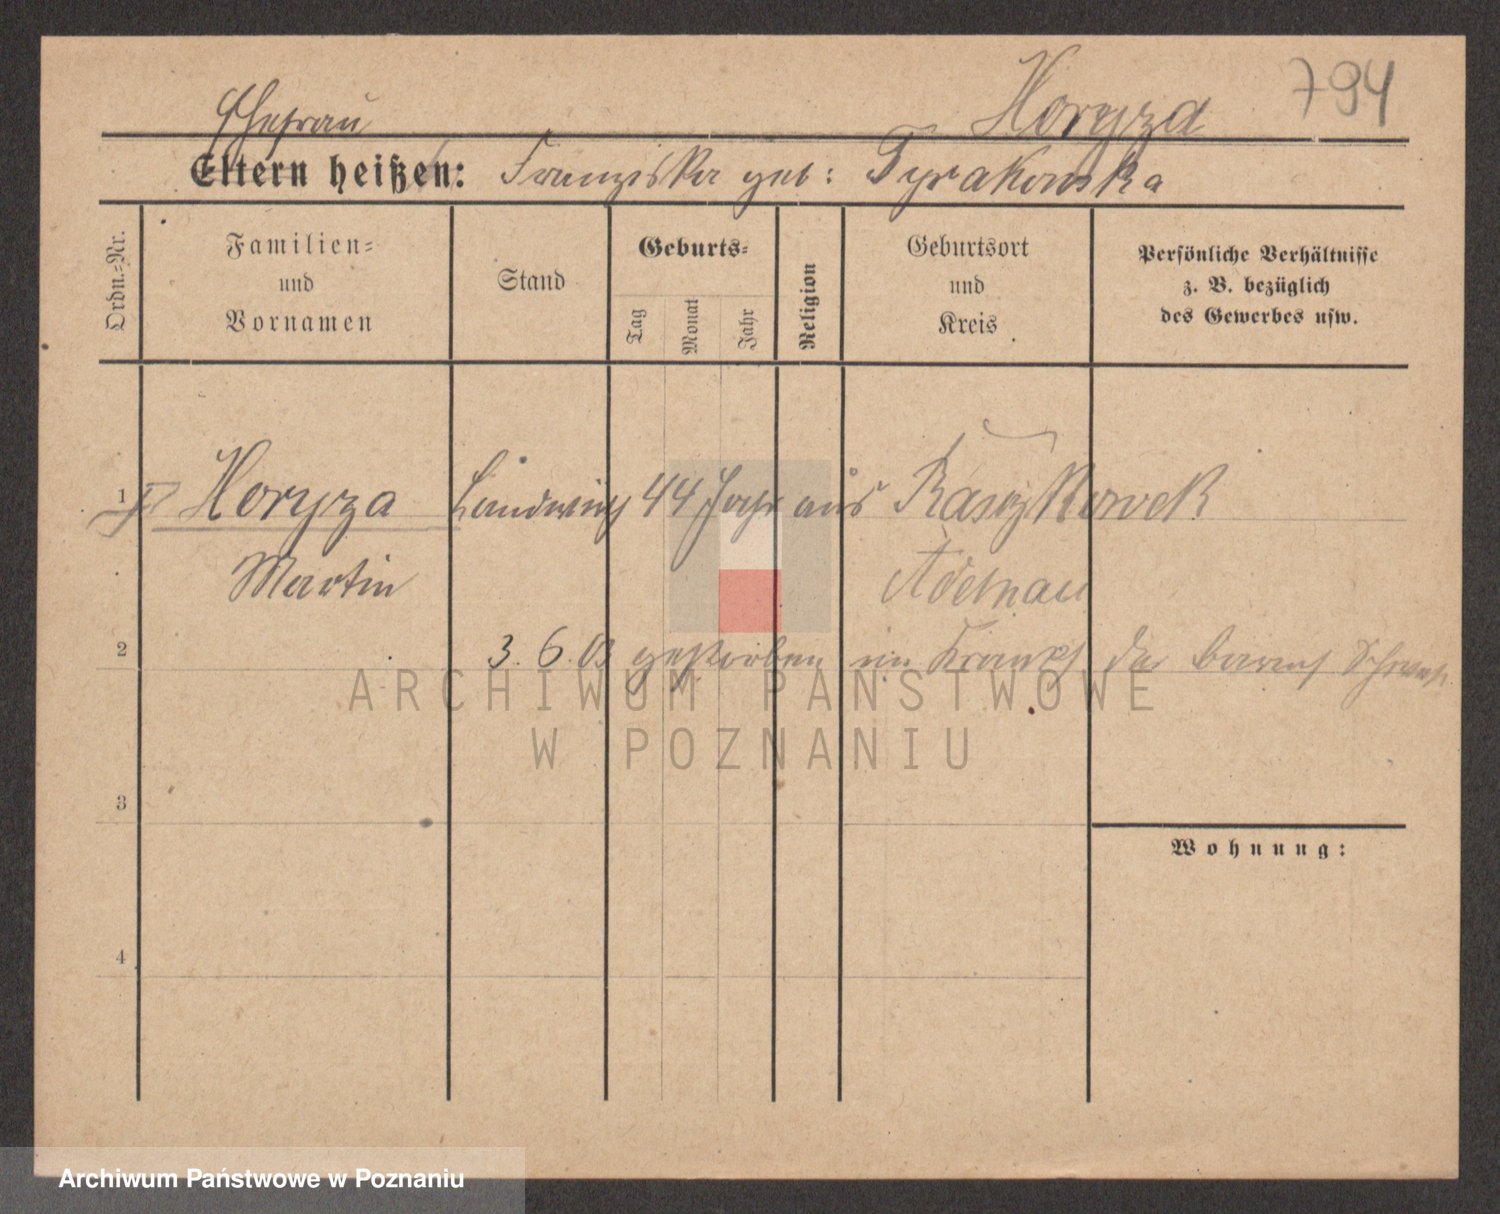 794
Horyza
Ehefrau
Eltern heißen: Franziska geb: Tyrakowska
Ordn.-Nr.
Familien-
und
Vornamen
Stand
Geburts-
Tag
Monat
Jahr
Religion
Geburtsort
und
Kreis
Persönliche Verhältnisse
z. B. bezüglich
des Gewerbes usw.
1 Horyza Landwirth 44 Jahr aus Raszkowek
Martin Adelnau
2 3.6.03 gestorben im
ARCHIWUM PAŃSTWOWE
W POZNANIU
3
Wohnung:
4
Archiwum Państwowe w Poznaniu